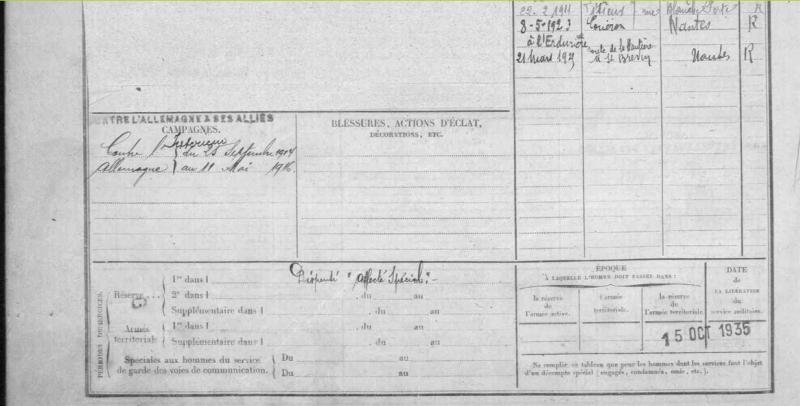 22. 2. 1911 rue R
8-5-1923 Couëron Nantes R
à l'Erdurière
21 Mars 19 route de la
à St Brevin Nantes R
CONTRE L'ALLEMAGNE & SES ALLIÉS
CAMPAGNES.
BLESSURES, ACTIONS D'ÉCLAT,
DÉCORATIONS, ETC.
Intérieur
Contre l' du 25 Septembre 1914
Allemagne au 11 Mai 1916
PÉRIODES D'EXERCICES.
Réserve...
1re dans l
2e dans l . du au
Supplémentaire dans l . du au
Armée
territoriale
1re dans l . du au
Supplémentaire dans l . du au
Spéciales aux hommes du service
de garde des voies de communication.
Du au
Du au
"Affecté Spécial"
ÉPOQUE
À LAQUELLE L'HOMME DOIT PASSER DANS :
la réserve
de l'armée active.
l'armée
territoriale.
la réserve de
l'armée territoriale.
DATE
de
LA LIBÉRATION
du
service militaire.
15 OCT 1935
Ne remplir ce tableau que pour les hommes dont les services font l'objet
d'un décompte spécial (engagés, condamnés, omis, etc.).